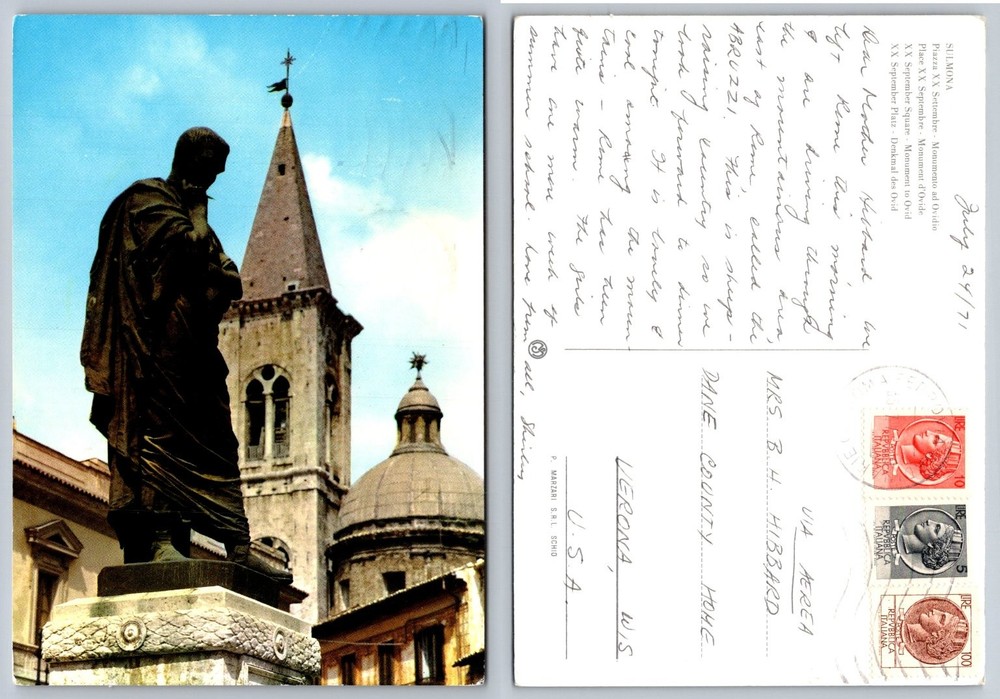 SULMONA
Piazza XX Settembre - Monumento ad Ovidio
Place XX Septembre - Monument d'Ovide
XX September Square - Monument to Ovid
XX September Platz - Denkmal des Ovid
July 24/71
Dear Mother Hibbard We
left Rome this morning
& are driving through
the mountainous area,
east of Rome, called the
ABRUZZI. This is sheep-
raising country so we
look forward to dinner
tonight. It is lovely &
cool among the moun-
tains - Rome has been
quite warm. The girls
have one more week of
summer school. Love from all, Shirley
VIA AEREA
MRS B. H. HIBBARD
DANE COUNTY HOME
VERONA, WIS
U.S.A.
P. MARZARI S.R.L. SCHIO
LIRE 10
REPVBBLICA
ITALIANA
LIRE 5
REPVBBLICA
ITALIANA
LIRE 100
REPVBBLICA
ITALIANA